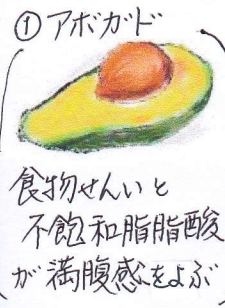 ① アボガド
食物せんいと
不飽和脂脂酸
が満腹感をよぶ